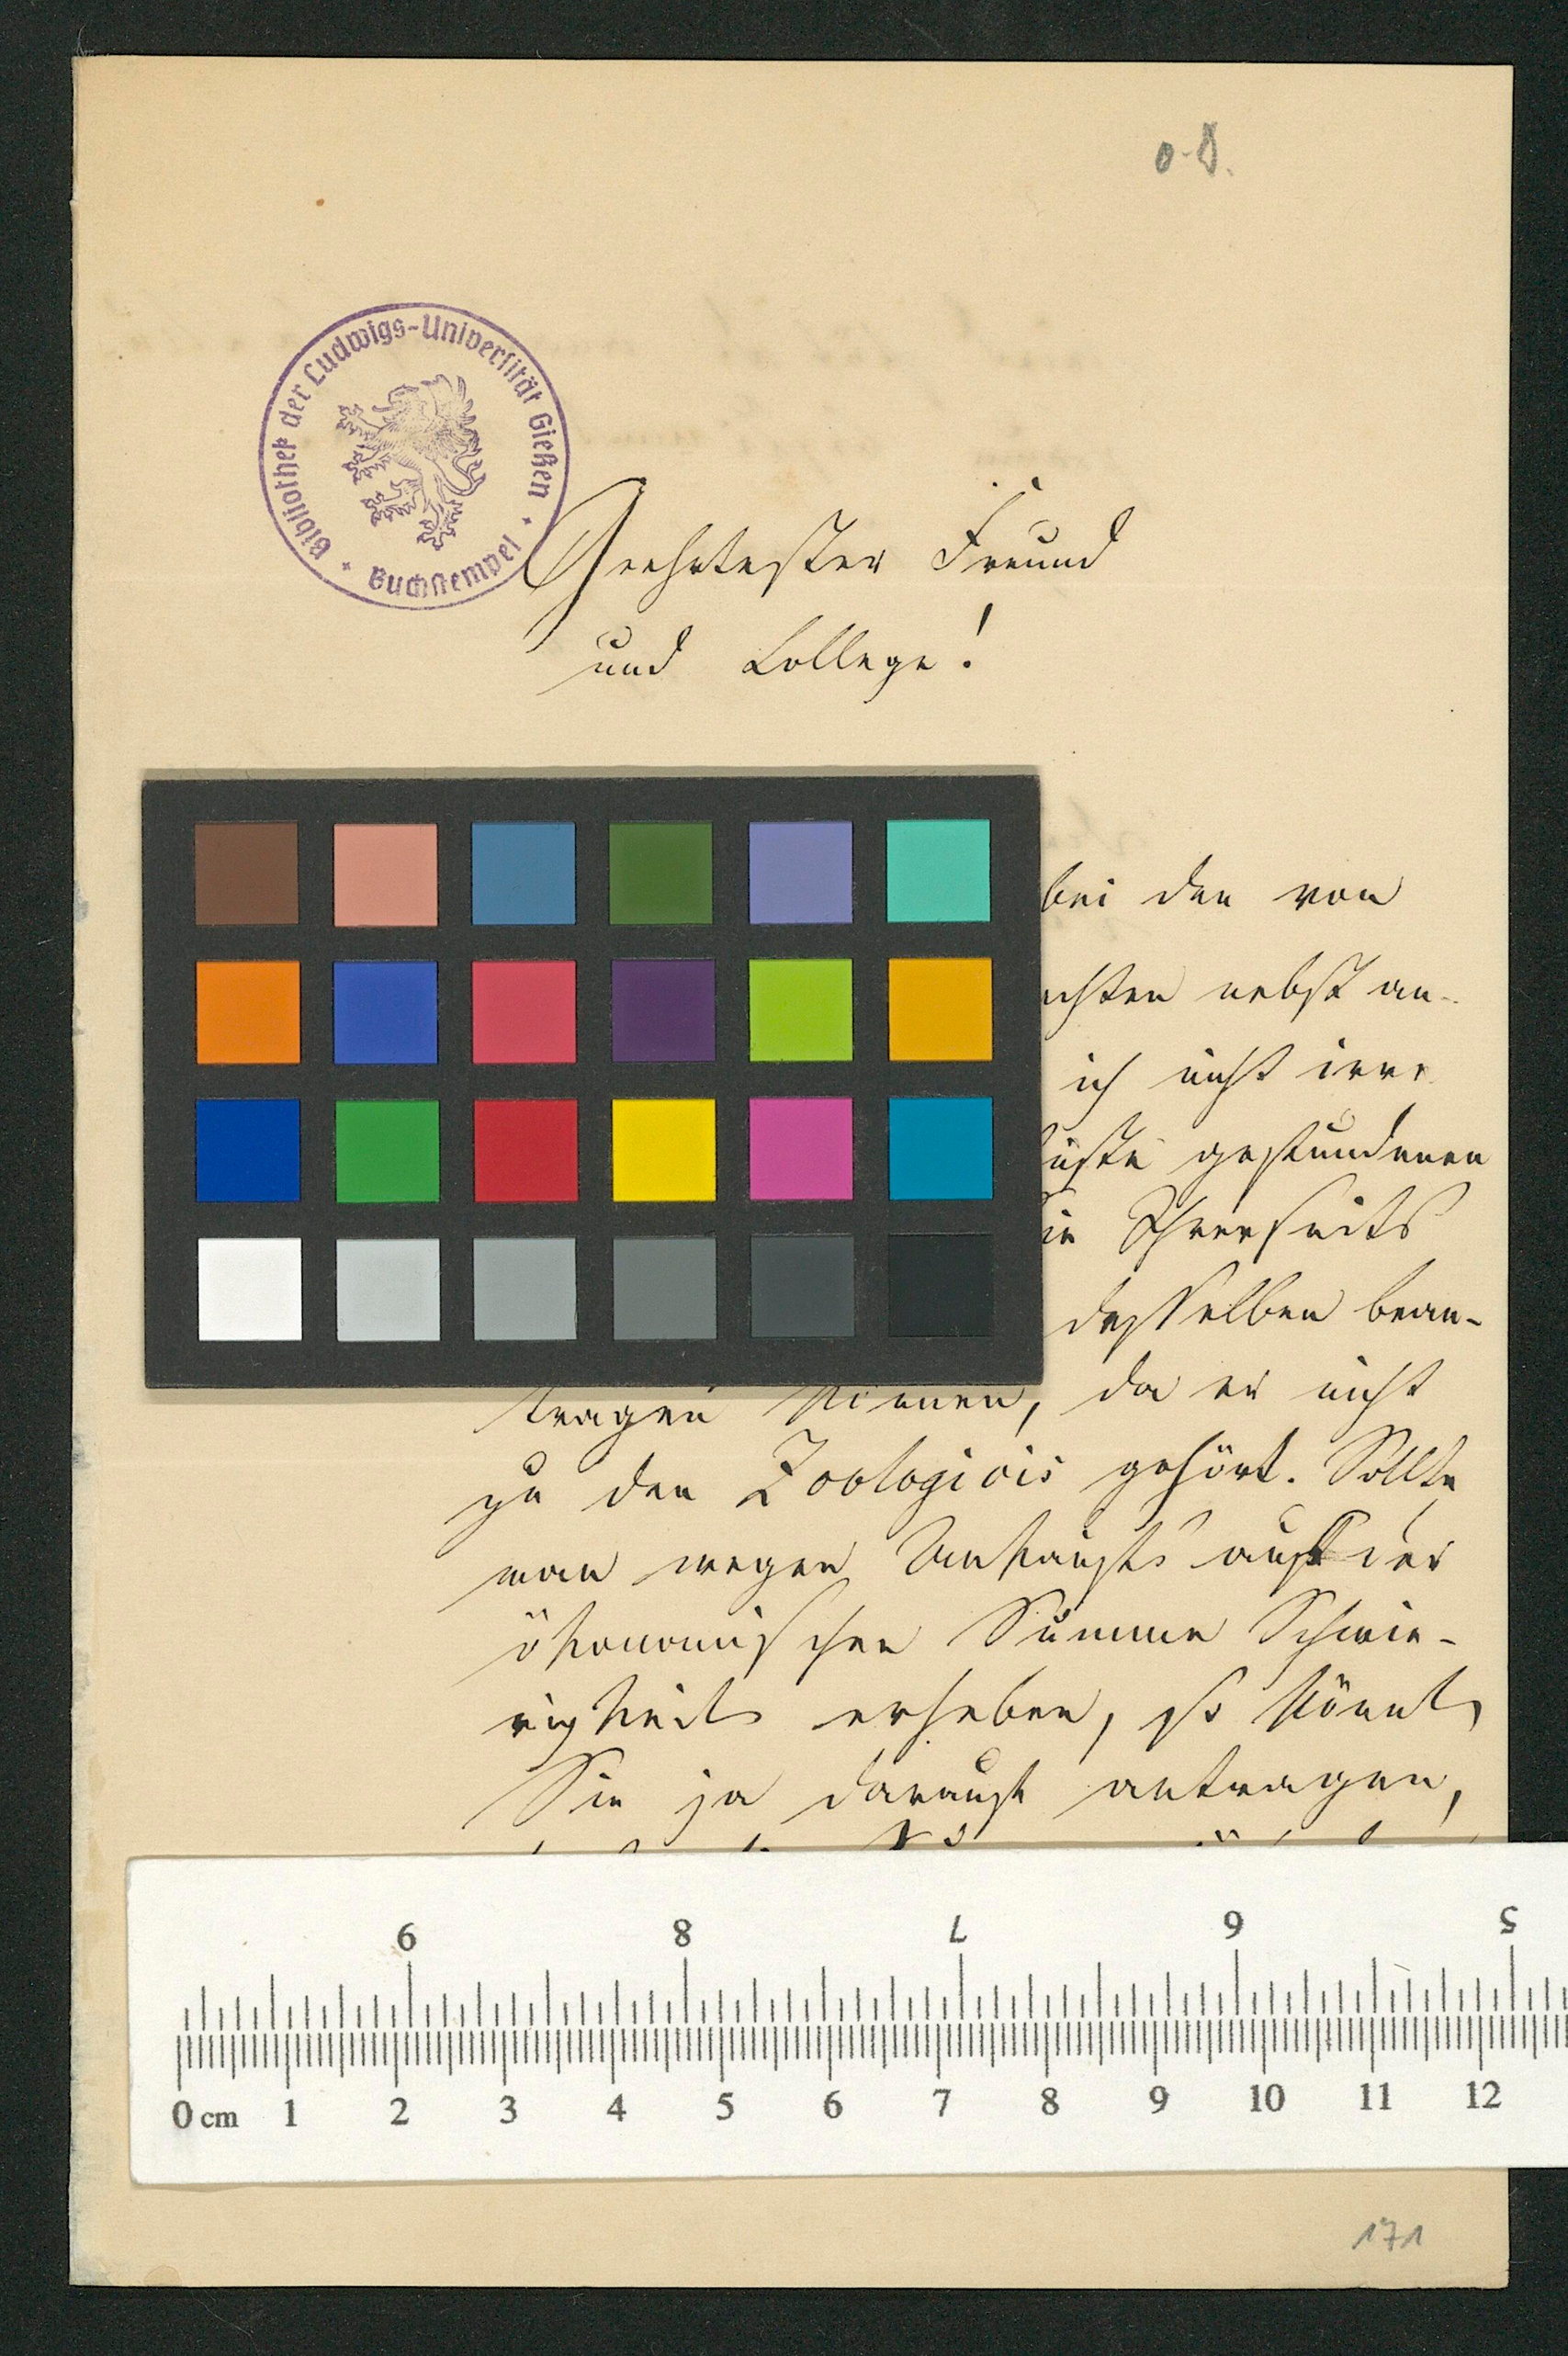 o. D.
Bibliothek der Ludwigs-Universität Gießen
Buchstempel
Geehrtester Freund
und College!
bei den von
nebst an-
ich nicht irre
gestundenen
Ihrerseits
desselben bean-
tragen können, da er nicht
zu den Zoologicis gehört. Sollte
man wegen Ankaufs auf der
ökonomischen Summe Schwie-
rigkeit erheben, so könnt
Sie ja darauf antragen,
9 8 7 6 5
0 cm 1 2 3 4 5 6 7 8 9 10 11 12
171